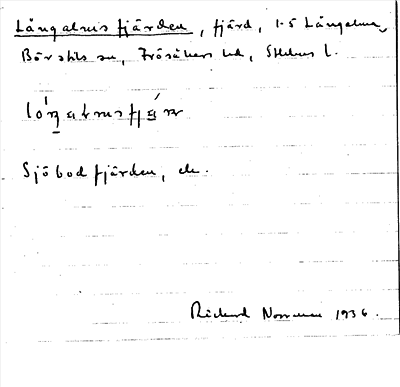 Långalnusfjärden, fjärd, 1-5 Långalma,
Börstils sn, Frösåkers hd, Sthlms l.
Sjöbodfjärden, de.
Rickard Norrman 1936.